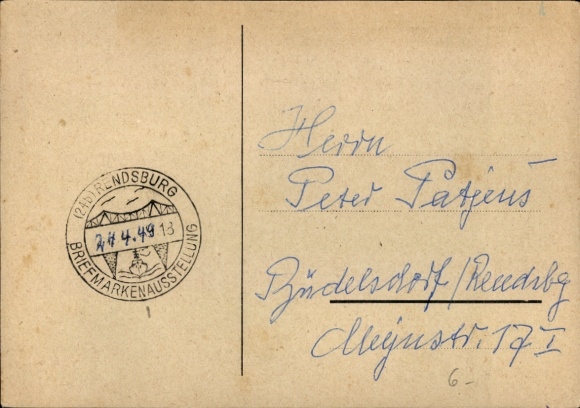 (24b) RENDSBURG
4.49 18
BRIEFMARKENAUSSTELLUNG
Herrn
Peter Patjens
Büdelsdorf/Rendsbg
Meynstr. 17 I
6.-